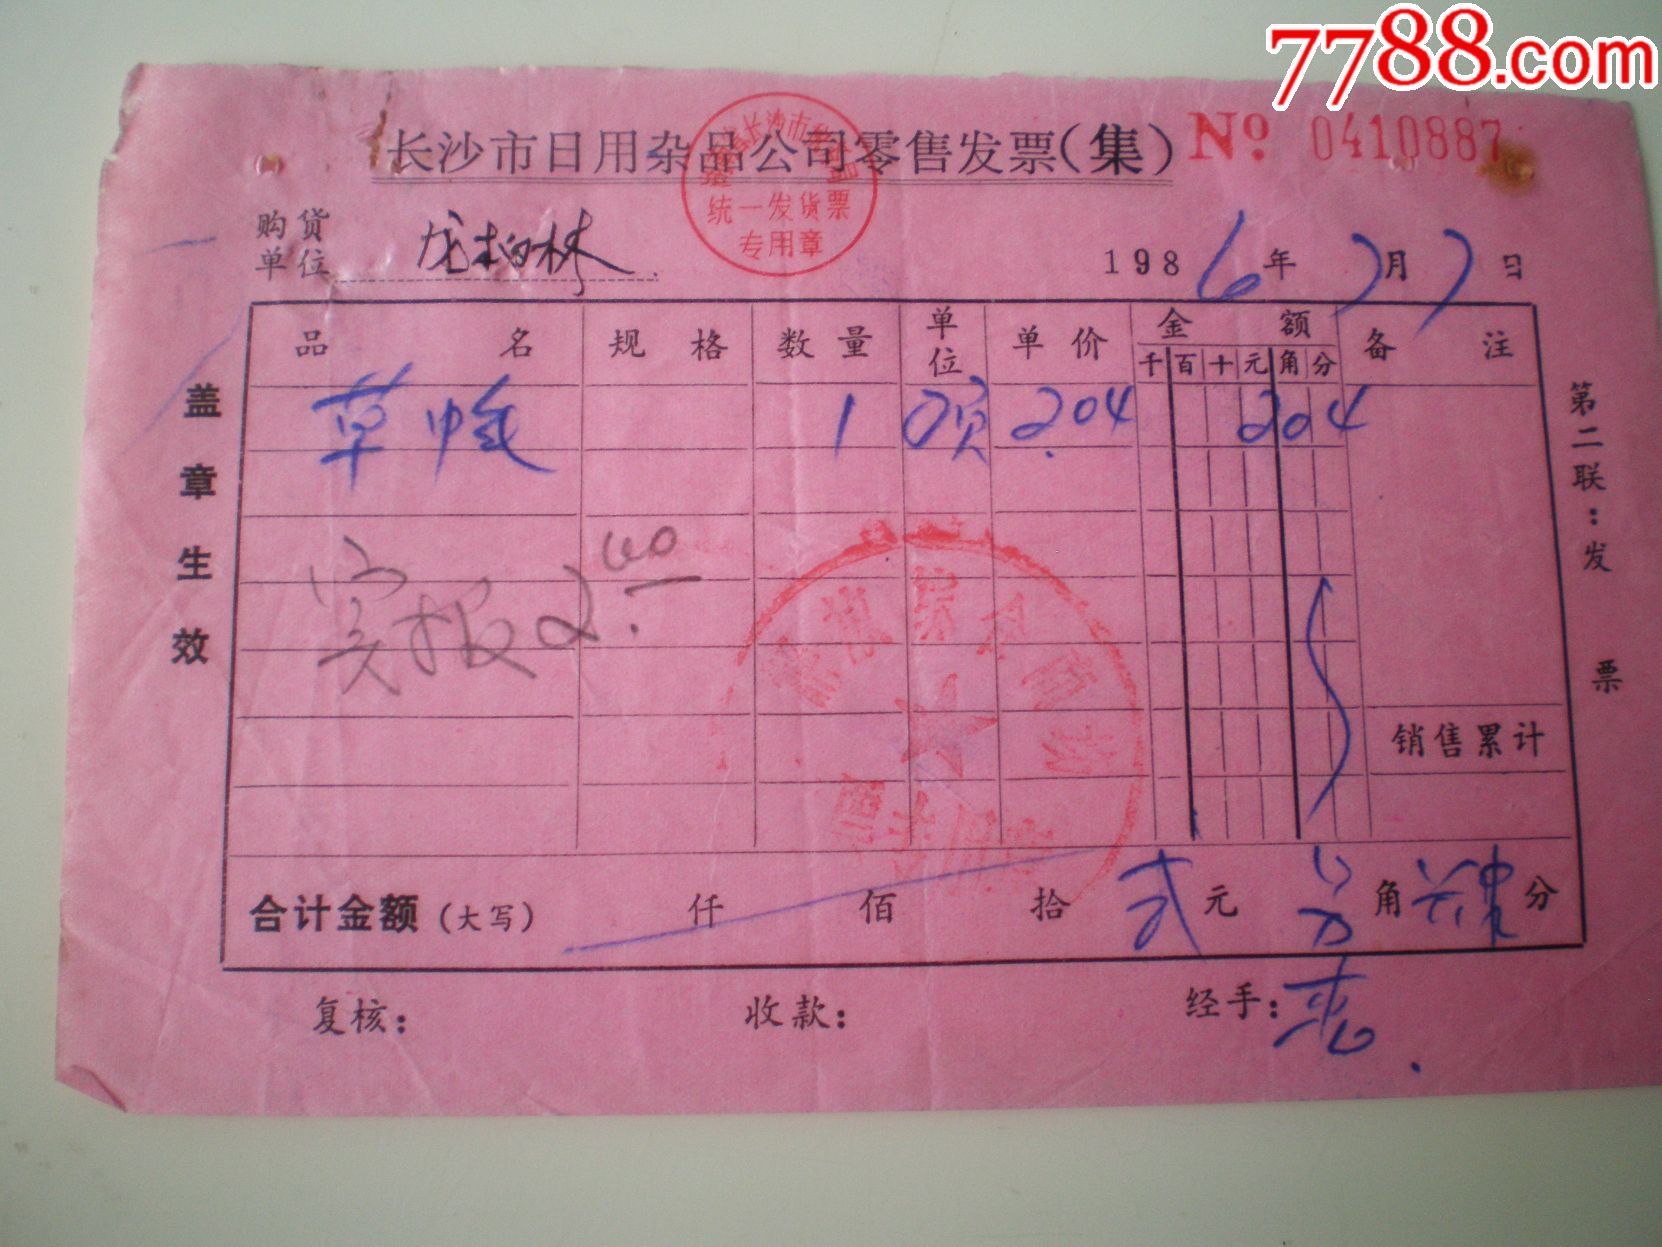 7788.com
长沙市日用杂品公司零售发票(集) No 0410887
统一发货票
专用章
购货单位 龙柏林 1986年7月7日
品名 规格 数量 单位 单价 金额 备注
千 百 十 元 角 分
草帽 1 顶 2.04 204
实报2.00
销售累计
合计金额(大写) 仟 佰 拾 贰元 另角 肆分
复核: 收款: 经手:
盖章生效
第二联:发票